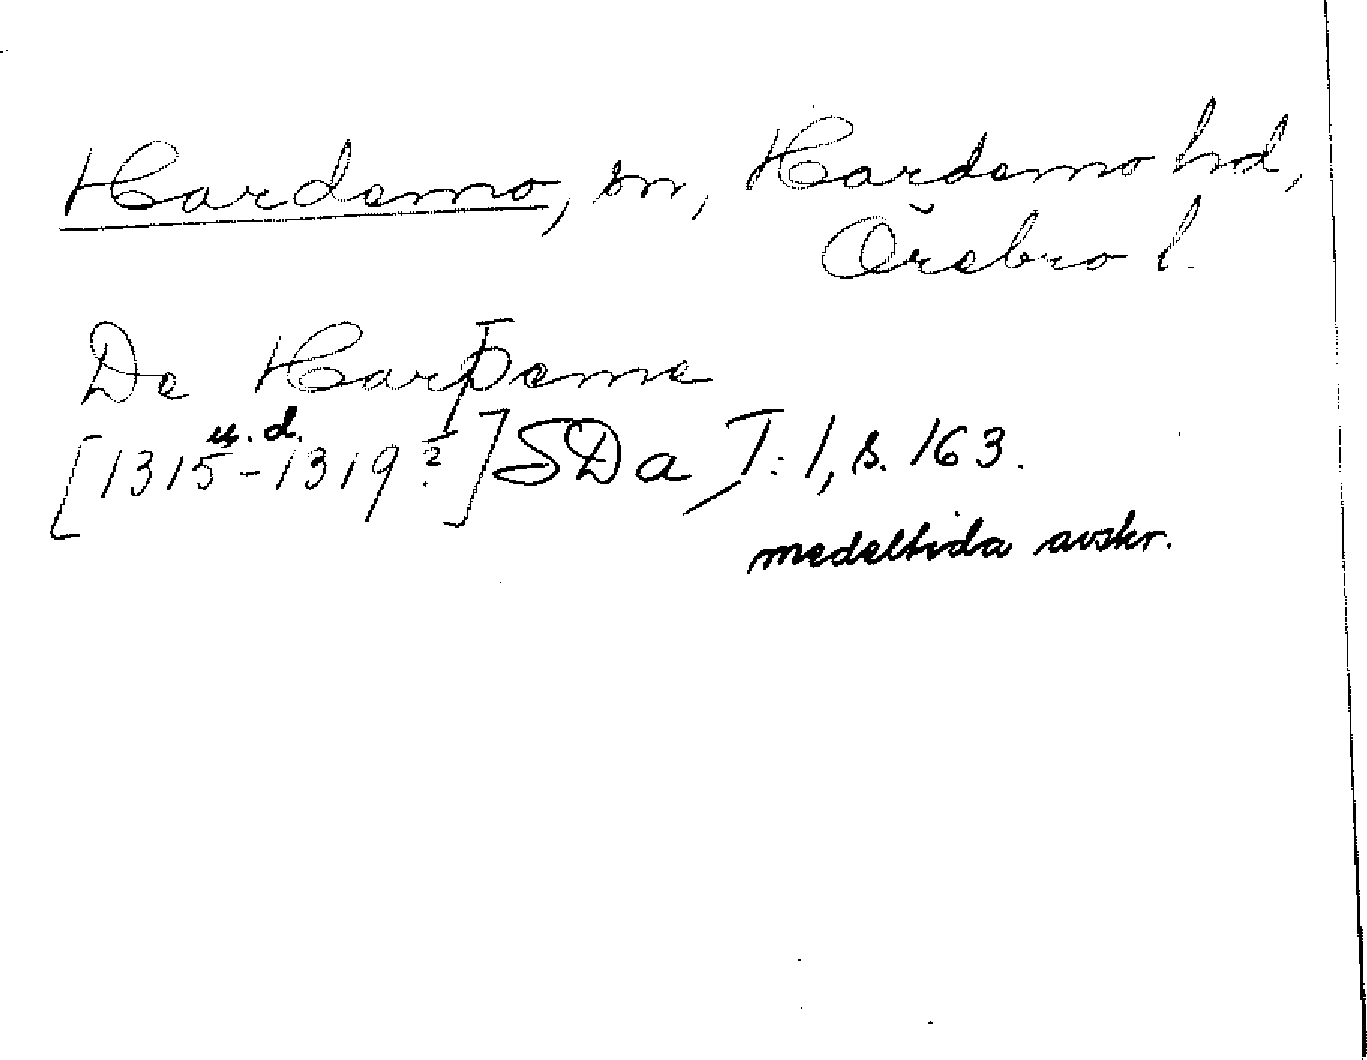 Hardemo, sn, Hardemo hd,
Örebro l.
De Harþeme
u.d.
[1315-1319?] SDa I:1, s. 163.
medeltida avskr.